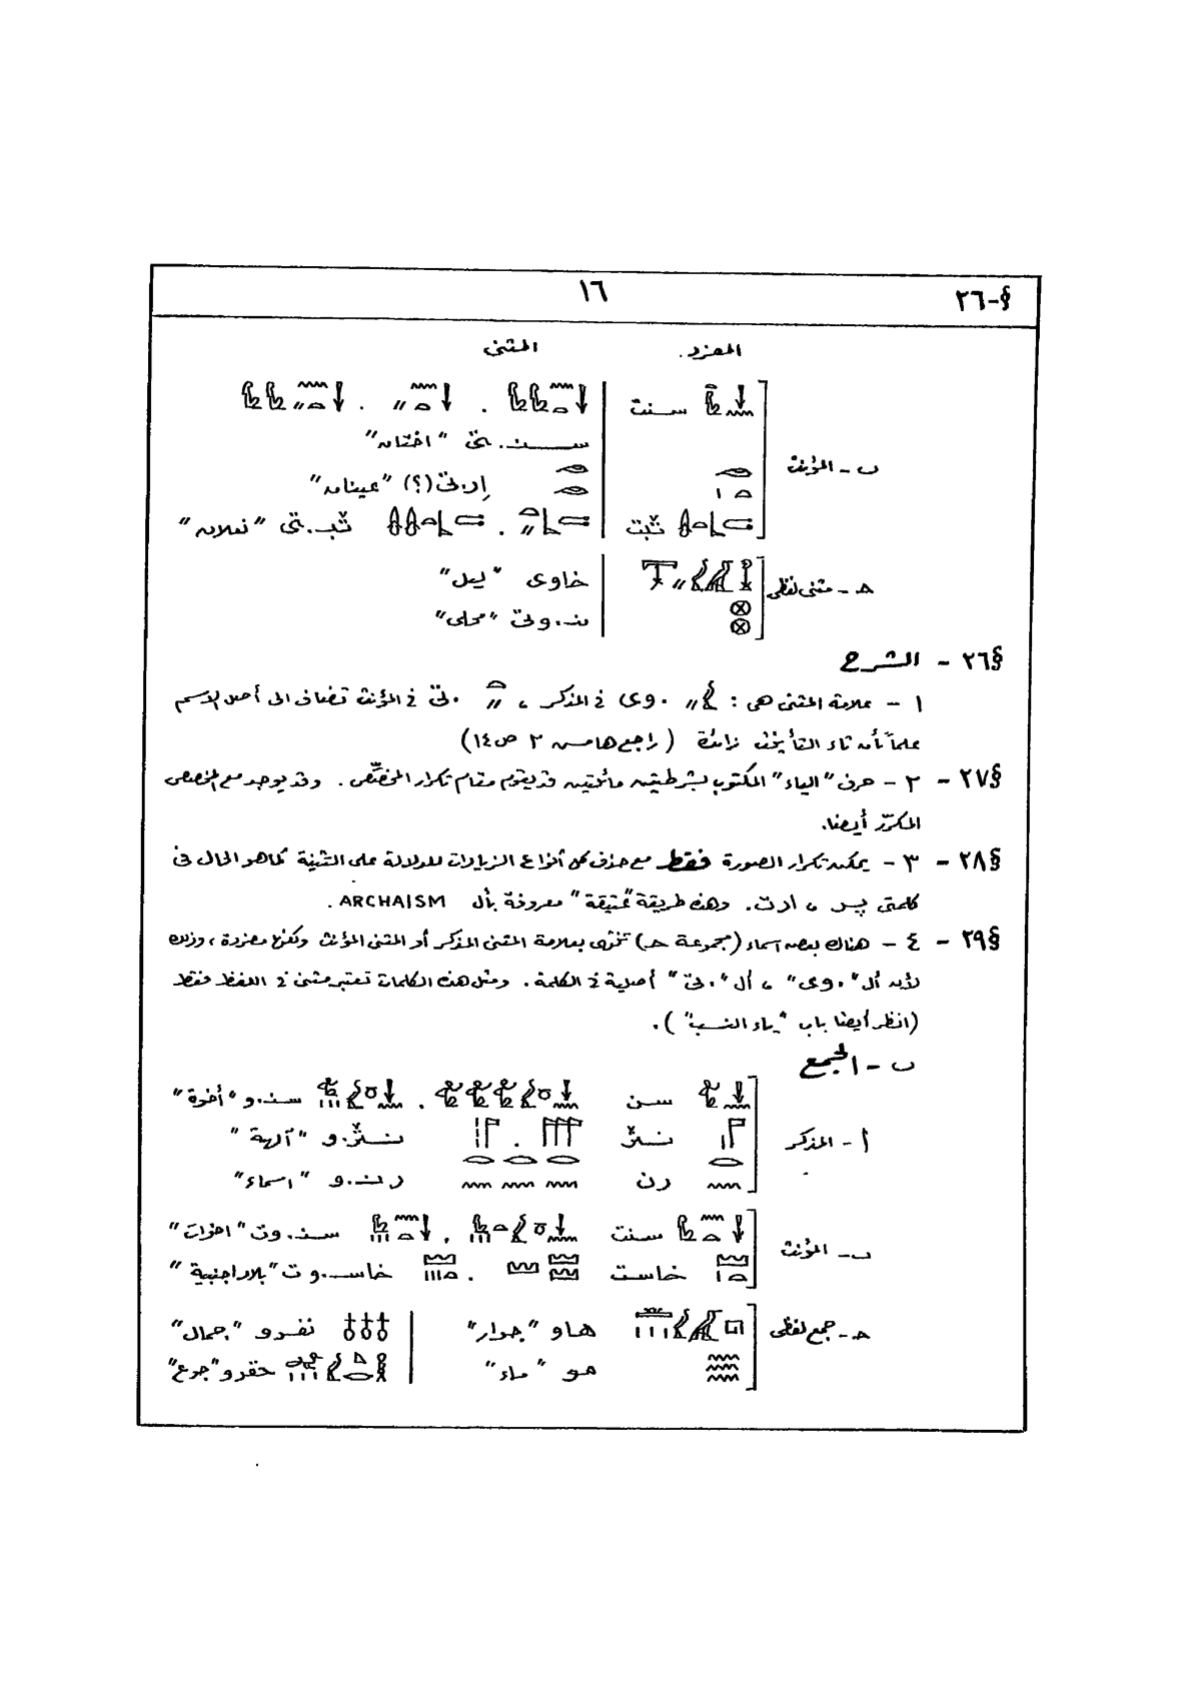 §-٢٦ ١٦
المفرد. المثنى
سنت
سنـ.تى "اختان"
ب - المؤنث
إر.تى (؟) "عينان"
ثبت ثبـ.تى "نعلان"
حـ - مثنى لفظى خاوى "ليل"
نـ.وتى "محلى"
§٢٦ - الشرح
١ - علامة المثنى هى : .وى فى المذكر ، .تى فى المؤنث تضاف الى أصل الاسم
علماً بأن تاء التأنيث زائدة (راجع هامش ٢ ص١٤)
§٢٧ - ٢ - حرف "الياء" المكتوب بشرطتين مائلتين قد يقوم مقام تكرار المخصِّص. وقد يوجد مع المخصص
المكرّر أيضا.
§٢٨ - ٣ - يمكن تكرار الصورة فقط مع حذف كل أنواع الزيادات للدلالة على التثنية كما هو الحال فى
كلمتى ، . وهذه طريقة "عتيقة" معروفة بأل ARCHAISM .
§٢٩ - ٤ - هناك بعض اسماء (مجموعة حـ) تنتهى بعلامة المثنى المذكر أو المثنى المؤنث ولكنها مفردة ، وذلك
لأن أل ".وى" ، أل ".تى" أصلية فى الكلمة. ومثل هذه الكلمات تعتبر مثنى فى اللفظ فقط
(انظر أيضا باب "ياء النسب").
ب - الجمع
سن سنـ.و "أخوة"
أ - المذكر نثر نثر.و "آلهة"
رن رنـ.و "اسماء"
سنت سنـ.وت "اخوات"
ب - المؤنث
خاست خاسـ.وت "بلاد اجنبية"
حـ - جمع لفظى هاو "جوار" نفرو "جمال"
مو "ماء" حقرو "جوع"